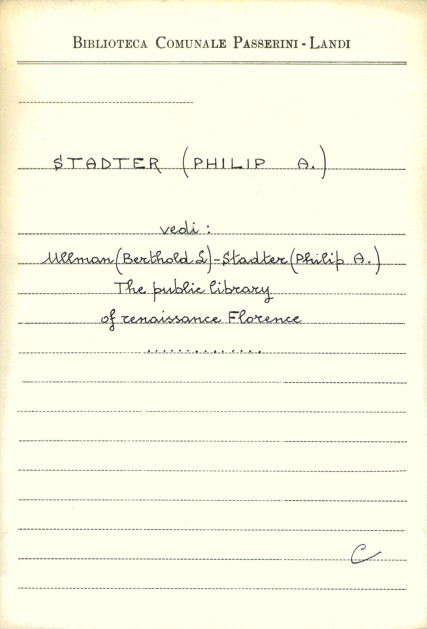 BIBLIOTECA COMUNALE PASSERINI - LANDI
STADTER (PHILIP A.)
vedi :
Ullman (Berthold L) - Stadter (Philip A.)
The public library
of renaissance Florence
..............
C